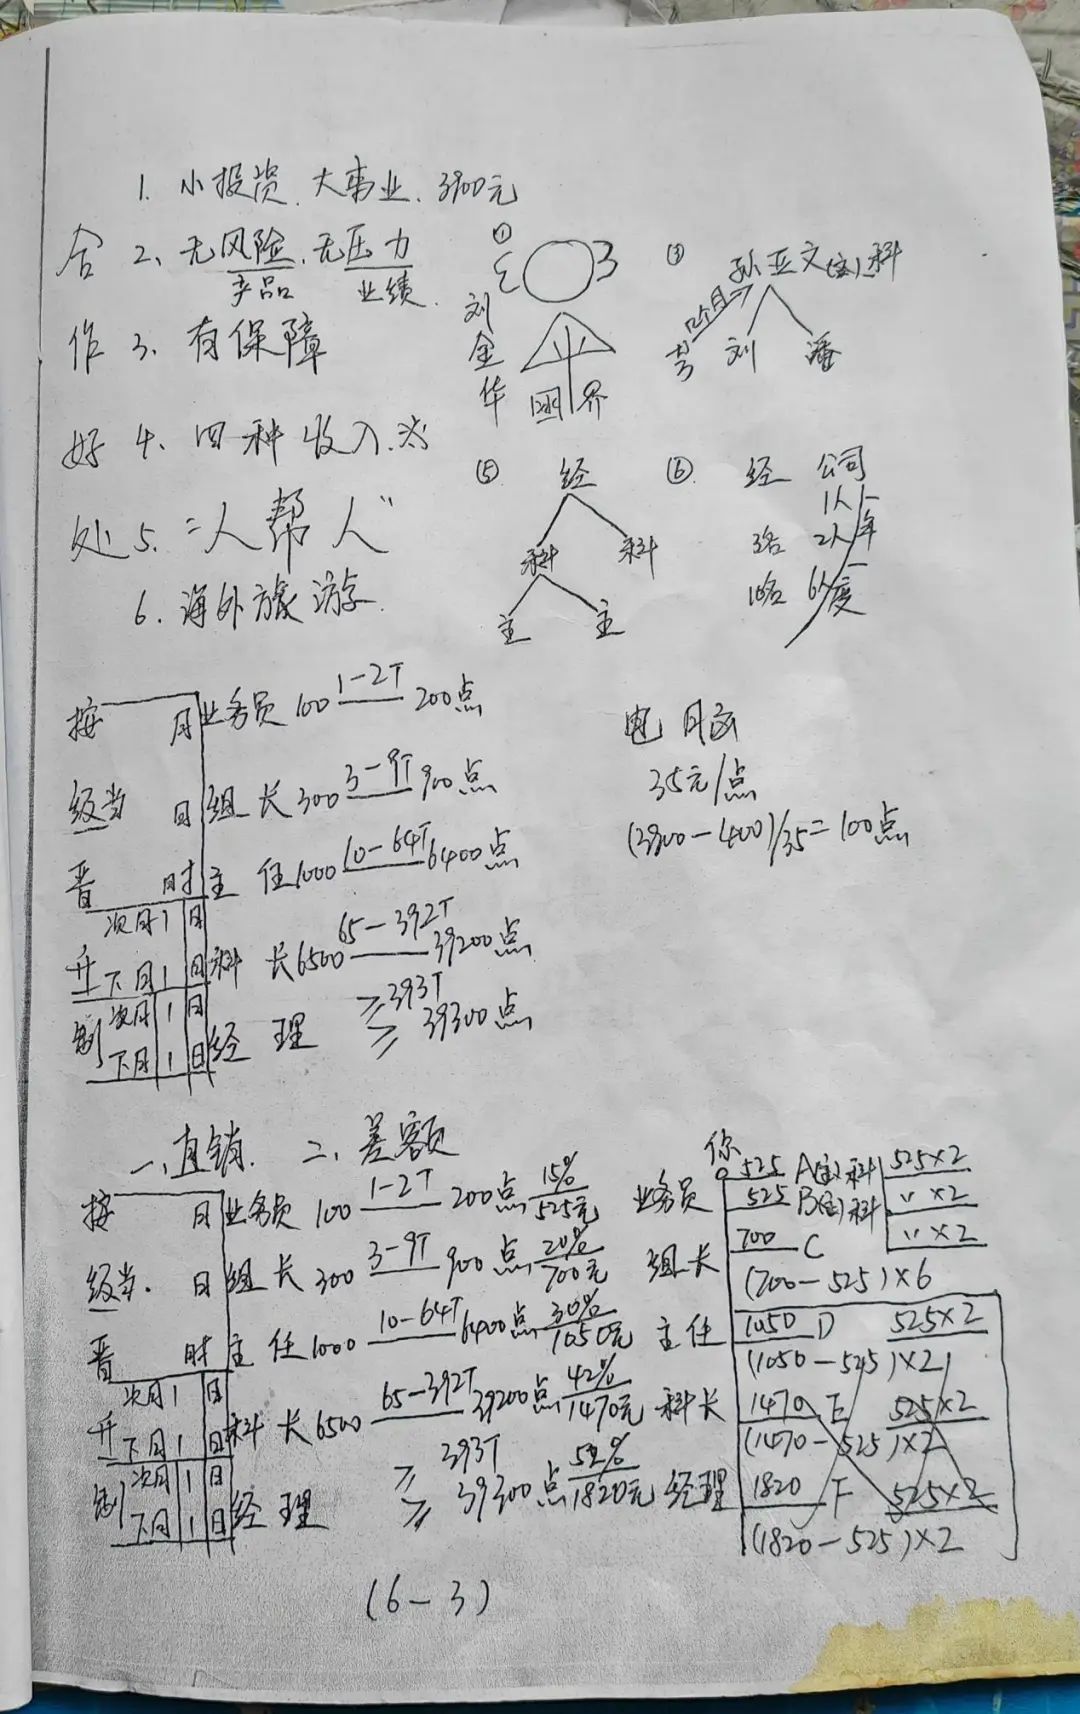 1. 小投资. 大事业. 3900元
合 2、无风险. 无压力
产品 业绩.
作 3、有保障
好 4、四种收入.
处 5. "人帮人"
6. 海外旅游.
① 3
刘金华
国界
③ 孙亚文 科
12个月
刘 潘
⑤ 经
科 科
主 主
⑥ 经 公司
1人
3名 2人 年
6 度
按 月 业务员 100 1-2T 200点
级当 日 组长 300 3-9T 900点
晋 时 主任 1000 10-64T 6400点
次月 1 日
升 下月 1 日 科长 6500 65-392T 39200点
制 次月 1 日
下月 1 日 经理 ≥393T ≥39300点
电
35元/点
(3900-400)/35=100点
一、直销. 二、差额
按 月 业务员 100 1-2T 200点 15% 525元 业务员
级当. 日 组长 300 3-9T 900点 20% 700元 组长
晋 时 主任 1000 10-64T 6400点 30% 1050元 主任
次月 1 日
升 下月 1 日 科长 6500 65-392T 39200点 42% 1470元 科长
制 次月 1 日
下月 1 日 经理 ≥393T ≥39300点 52% 1820元 经理
你
525 A 科 525×2
525 B 科 〃×2
700 C 〃×2
(700-525)×6
1050 D 525×2
(1050-525)×2
1470 E 525×2
(1470-525)×2
1820 F 525×2
(1820-525)×2
(6-3)